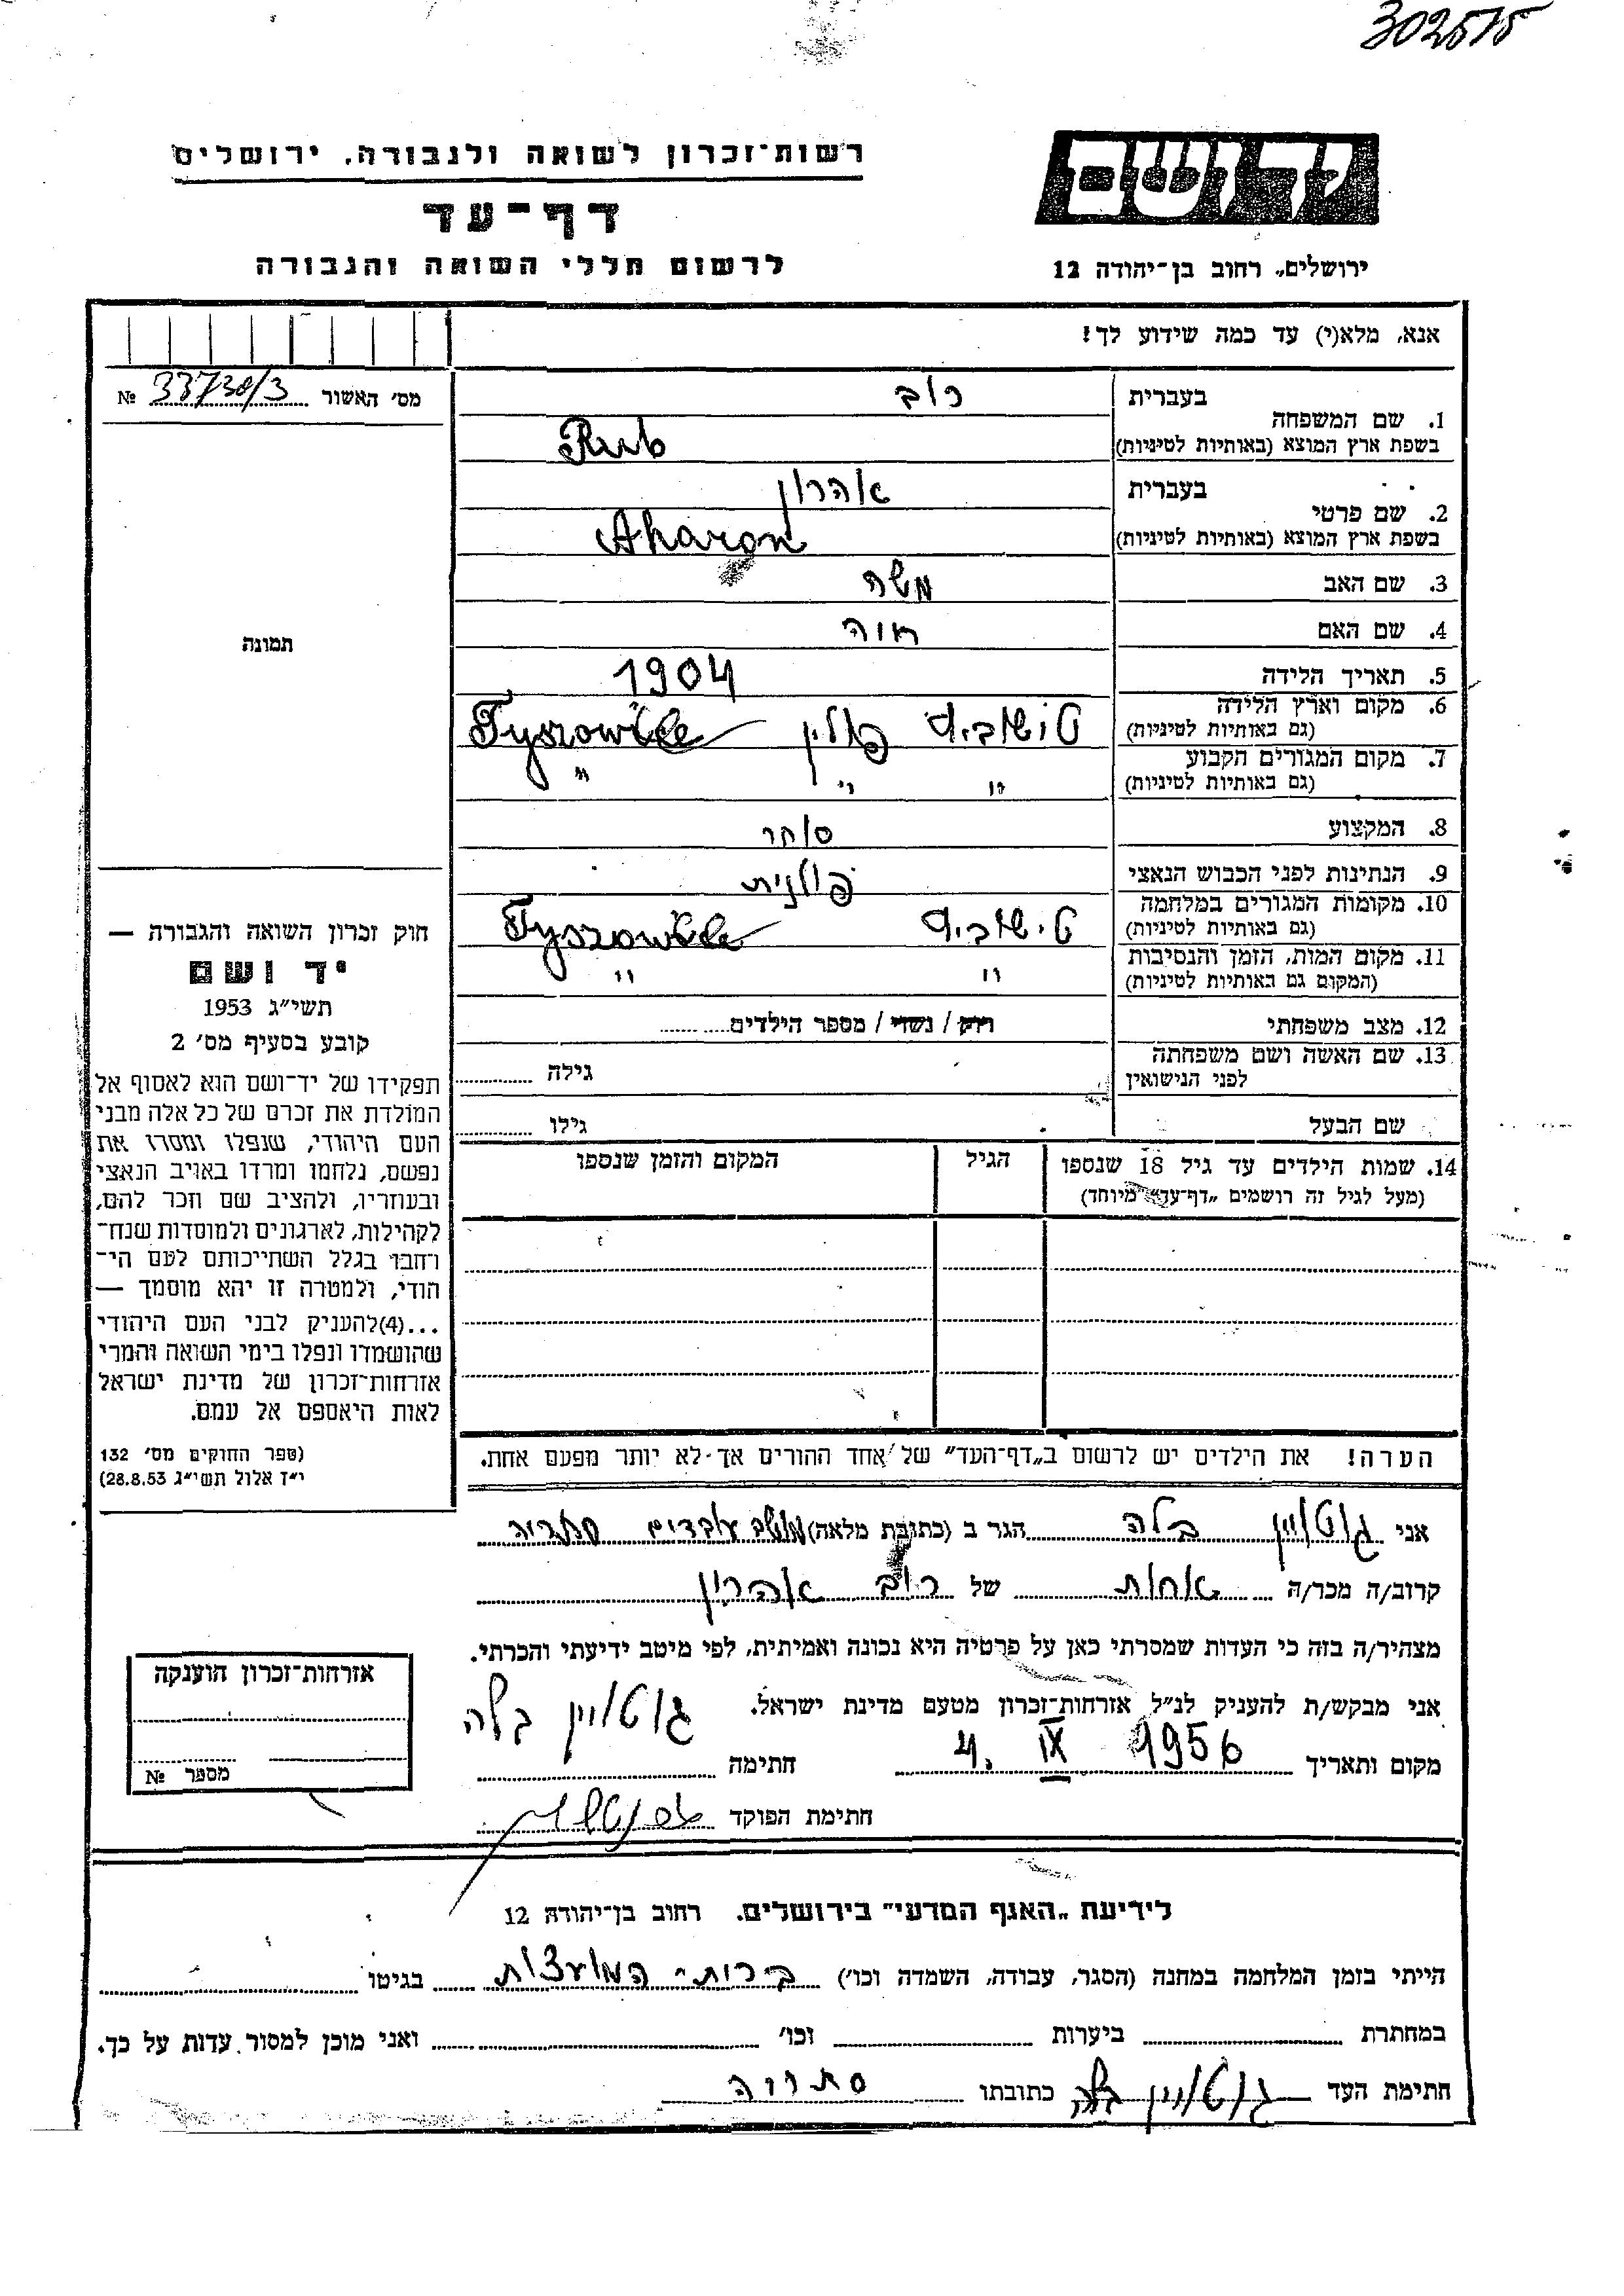 302575
רשות־זכרון לשואה ולגבורה, ירושלים
יד ושם
דף־עד
לרשום חללי השואה והגבורה
ירושלים, רחוב בן־יהודה 12
אנא, מלא(י) עד כמה שידוע לך!
מס׳ האשור 33730/3 №
1. שם המשפחה בעברית רוב
בשפת ארץ המוצא (באותיות לטיניות) Rub
2. שם פרטי בעברית אהרון
בשפת ארץ המוצא (באותיות לטיניות) Aharon
3. שם האב משה
4. שם האם חוה
תמונה
5. תאריך הלידה 1904
6. מקום וארץ הלידה (גם באותיות לטיניות) פולין
7. מקום המגורים הקבוע (גם באותיות לטיניות) " " "
8. המקצוע סוחר
9. הנתינות לפני הכבוש הנאצי פולנית
10. מקומות המגורים במלחמה (גם באותיות לטיניות)
11. מקום המות, הזמן והנסיבות (המקום גם באותיות לטיניות) " "
12. מצב משפחתי רוק / נשוי / מספר הילדים
13. שם האשה ושם משפחתה לפני הנישואין גילה
שם הבעל גילו
14. שמות הילדים עד גיל 18 שנספו הגיל המקום והזמן שנספו
(מעל לגיל זה רושמים „דף־עד״ מיוחד)
חוק זכרון השואה והגבורה —
יד ושם
תשי״ג 1953
קובע בסעיף מס׳ 2
תפקידו של יד־ושם הוא לאסוף אל
המולדת את זכרם של כל אלה מבני
העם היהודי, שנפלו ומסרו את
נפשם, נלחמו ומרדו באויב הנאצי
ובעוזריו, ולהציב שם וזכר להם,
לקהילות, לארגונים ולמוסדות שנח־
רחבו בגלל השתייכותם לעם הי־
הודי, ולמטרה זו יהא מוסמך —
...(4)להעניק לבני העם היהודי
שהושמדו ונפלו בימי השואה והמרי
אזרחות־זכרון של מדינת ישראל
לאות היאספם אל עמם.
(ספר החוקים מס׳ 132
י״ז אלול תשי״ג 28.8.53)
הערה! את הילדים יש לרשום ב„דף־העד״ של אחד ההורים אך לא יותר מפעם אחת.
אני גוטויין בלה הגר ב (כתובת מלאה) מושב עובדים סתריה
קרוב/ה מכר/ה אחות של רוב אהרון
מצהיר/ה בזה כי העדות שמסרתי כאן על פרטיה היא נכונה ואמיתית, לפי מיטב ידיעתי והכרתי.
אני מבקש/ת להעניק לנ״ל אזרחות־זכרון מטעם מדינת ישראל.
מקום ותאריך 4. IX 1956 חתימה גוטויין בלה
חתימת הפוקד
אזרחות־זכרון הוענקה
מספר №
לידיעת „האגף המדעי״ בירושלים. רחוב בן־יהודה 12
הייתי בזמן המלחמה במחנה (הסגר, עבודה, השמדה וכו׳) ברית־המועצות בגיטו
במחתרת ביערות וכו׳ ואני מוכן למסור עדות על כך.
חתימת העד גוטויין בלה כתובתו